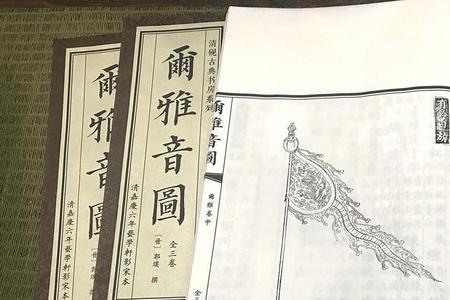 爾雅音圖
清嘉慶六年藝學軒影宋本
[晉] 郭璞
清砚古典书房系列
爾雅音圖
全三卷
[晉] 郭璞 撰
清嘉慶六年藝學軒影宋本
爾雅音圖
爾雅卷中
全三